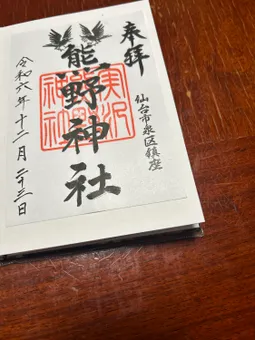 奉拝
仙台市泉区鎮座
熊野神社
実沢
神社
令和六年十二月二十三日